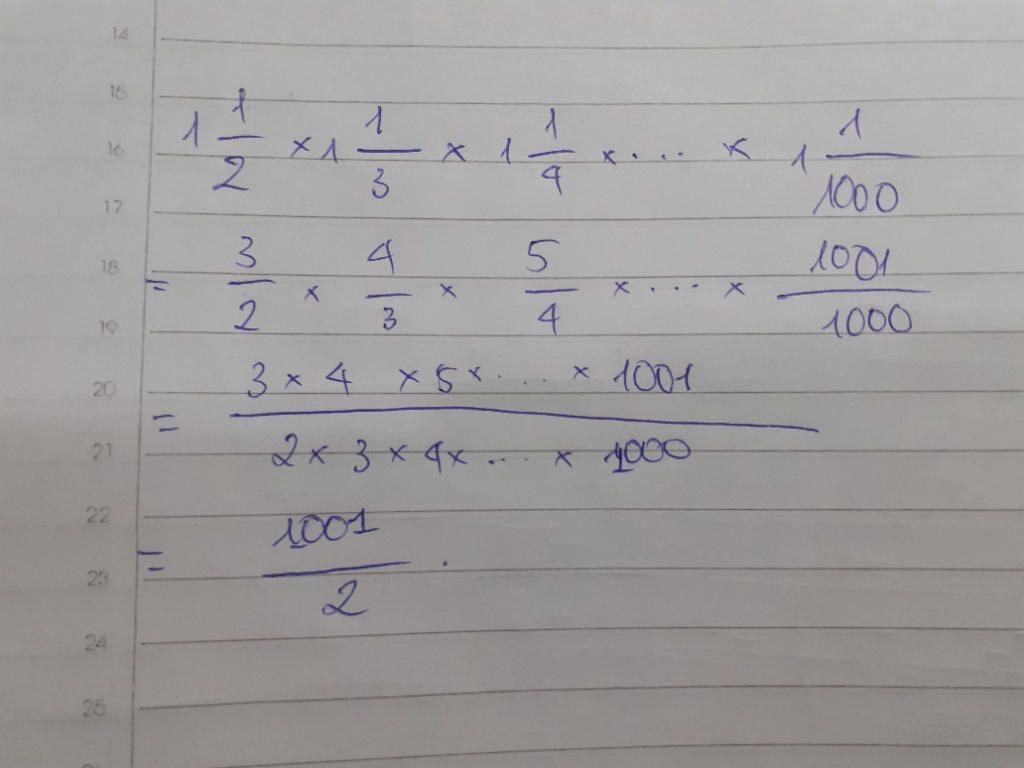 14
15
16 1 1/2 × 1 1/3 × 1 1/4 × ... × 1 1/1000
17
18 = 3/2 × 4/3 × 5/4 × ... × 1001/1000
19
20 = (3 × 4 × 5 × ... × 1001)/(2 × 3 × 4 × ... × 1000)
21
22 = 1001/2 .
23
24
25